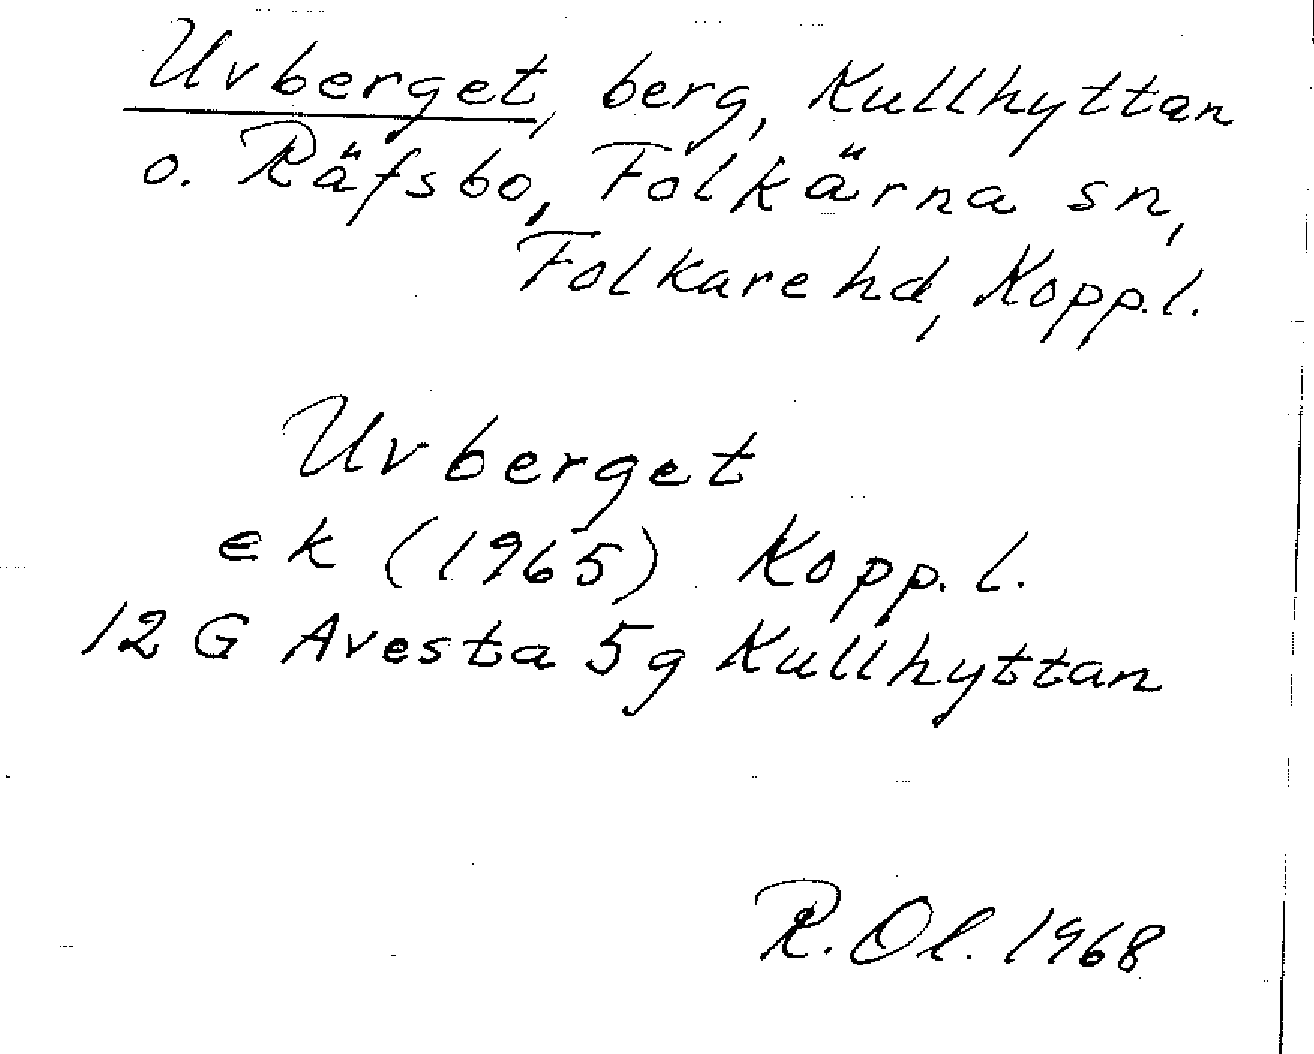 Uvberget, berg, Kullhyttan
o. Räfsbo, Folkärna sn,
Folkare hd, Kopp.l.
Uvberget
ek (1965) Kopp. l.
12 G Avesta 5g Kullhyttan
R. Ol. 1968